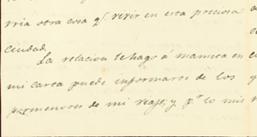 ria otra cosa q.e ver en esta preciosa
ciudad.
La relacion te hago á manera en
mi carta puede informaros de los
pormenores de mi viage, y p.r lo mis